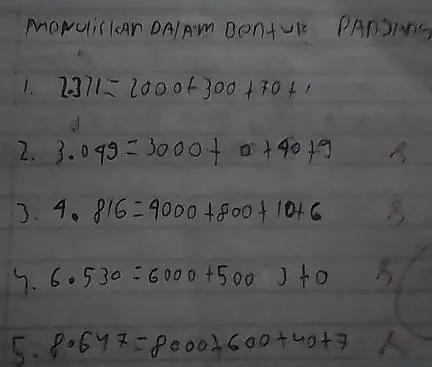 MENULISKAN DALAM BENTUK PANJANG
1. 2371=2000+300+70+1
2. 3.049=3000+0+40+9
3. 4.816=4000+800+10+6
4. 6.530=6000+500 +0
5. 8.647=8000+600+40+7